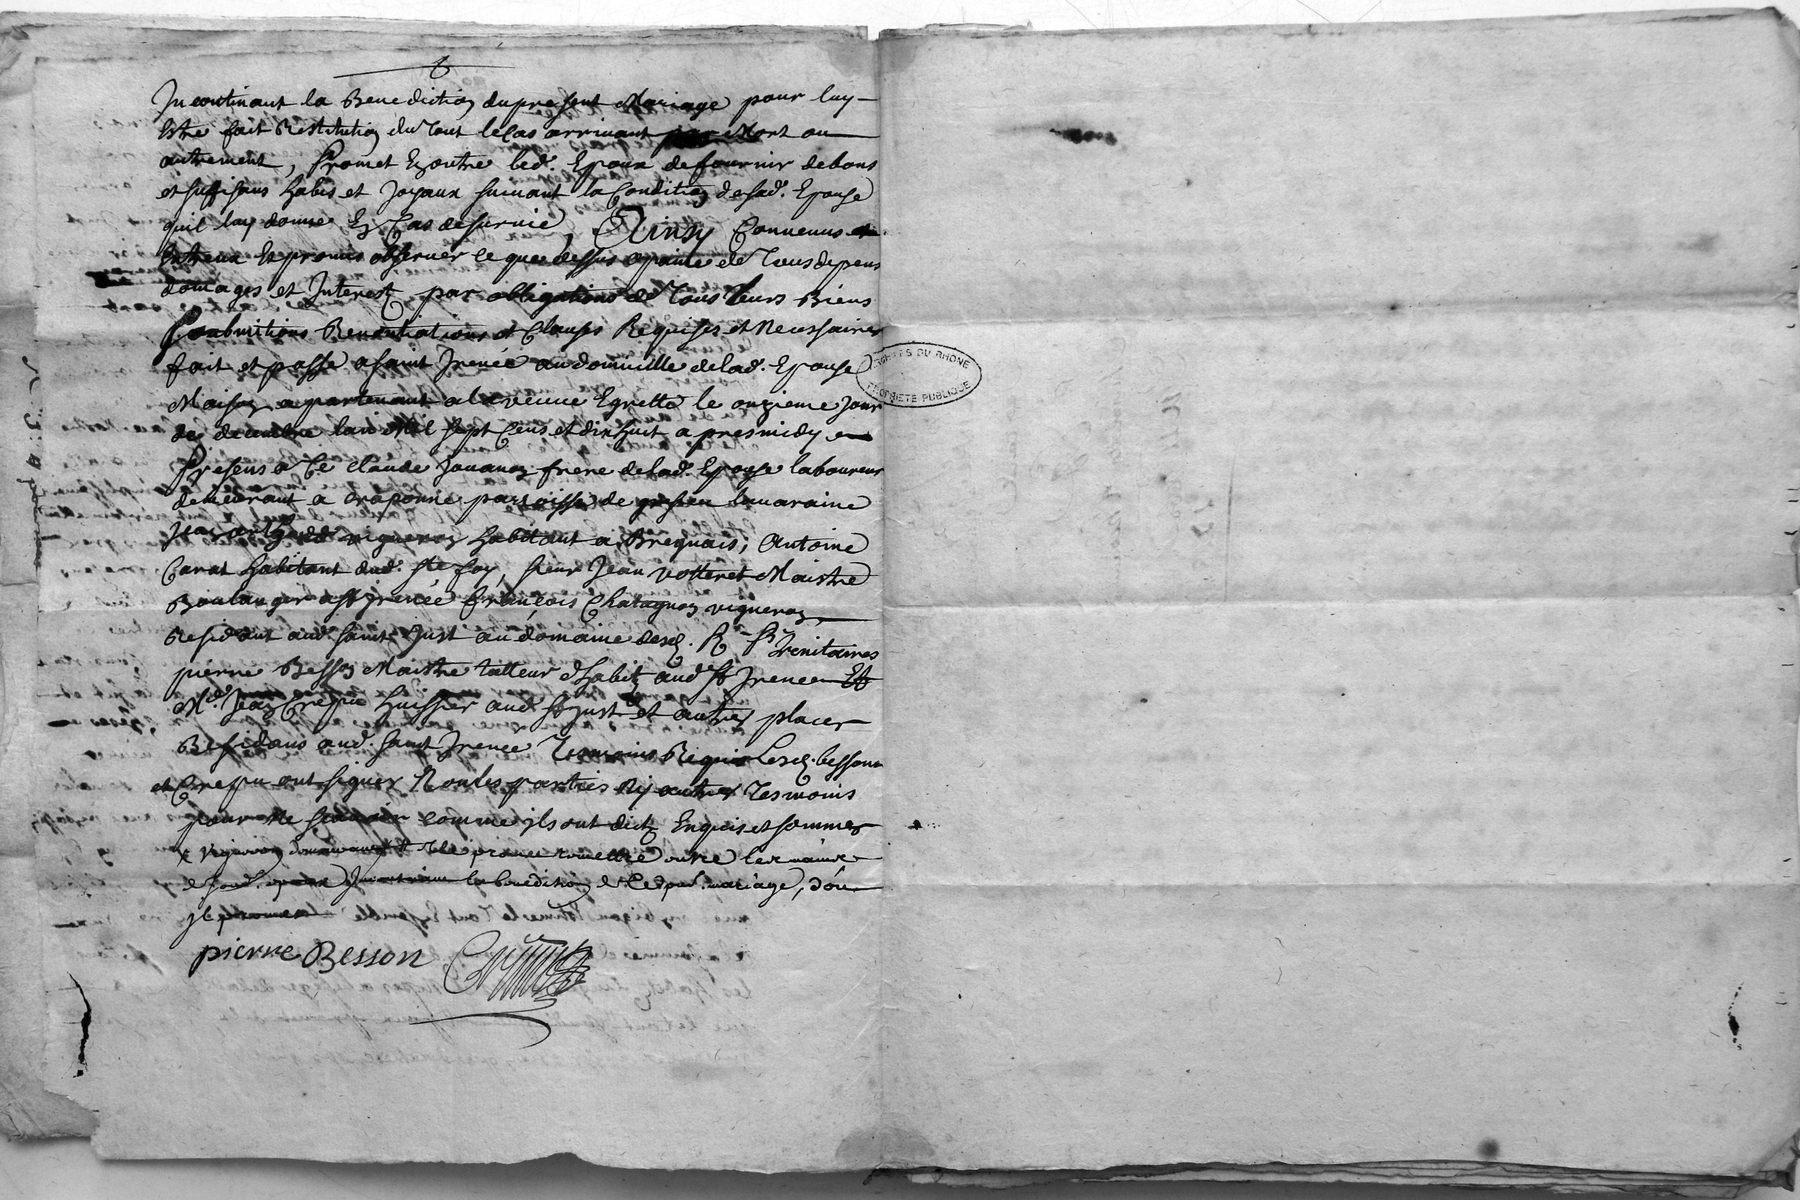 Incontinant la Benediction du present Mariage pour luy
Estre fait Restitution du tout le Cas arrivant par Mort ou
autrement, Promet En outre led. Epoux de fournir de bons
et suffisans habis et Joyaux suivant la Condition de sad. Epouse
quil luy donne En Cas de survie, Ainsy Convenus
Entreux Et promis observer ce que dessus a paine de Tous depens
domages et Interest par obligations de Tous leurs Biens
Soubmitions Renontiations et Clauses Requises et Necessaires
fait et passé a saint Irenée au domicille de lad. Epouse
Maison apartenant a la veuve Egrette le onzieme Jour
de decembre lan Mil sept Cens et dix huit apres midy en
Presens a Ce Claude Jouanon frere de lad. Epouse laboureur
demeurant a Craponne parroisse de gresieu lavaraine
Jean vigneron habitant a Breguais, Antoine
Carat habitant aud. Ste foy, sieur Jean votteret Maistre
Boulanger a St Irenée francois Chatagnon vigneron
Residant aud. saint Just au domaine desd. R. Trinitaires
pierre Besson Maistre talleur dhabits aud. St Irenée Et
Me. Jean Crespu huissier aud. St Just et autres places
Residans aud. saint Irenée Tesmoins Requis Lesd. besson
et Crespu ont signez Non les parties Ny autres Tesmoins
pour Ne scavoir comme ils ont dict Enquis et sommes
la benediction de led. mariage, dou
il promet
pierre Besson Crespu
ARCHIVES DU RHONE
PROPRIETE PUBLIQUE